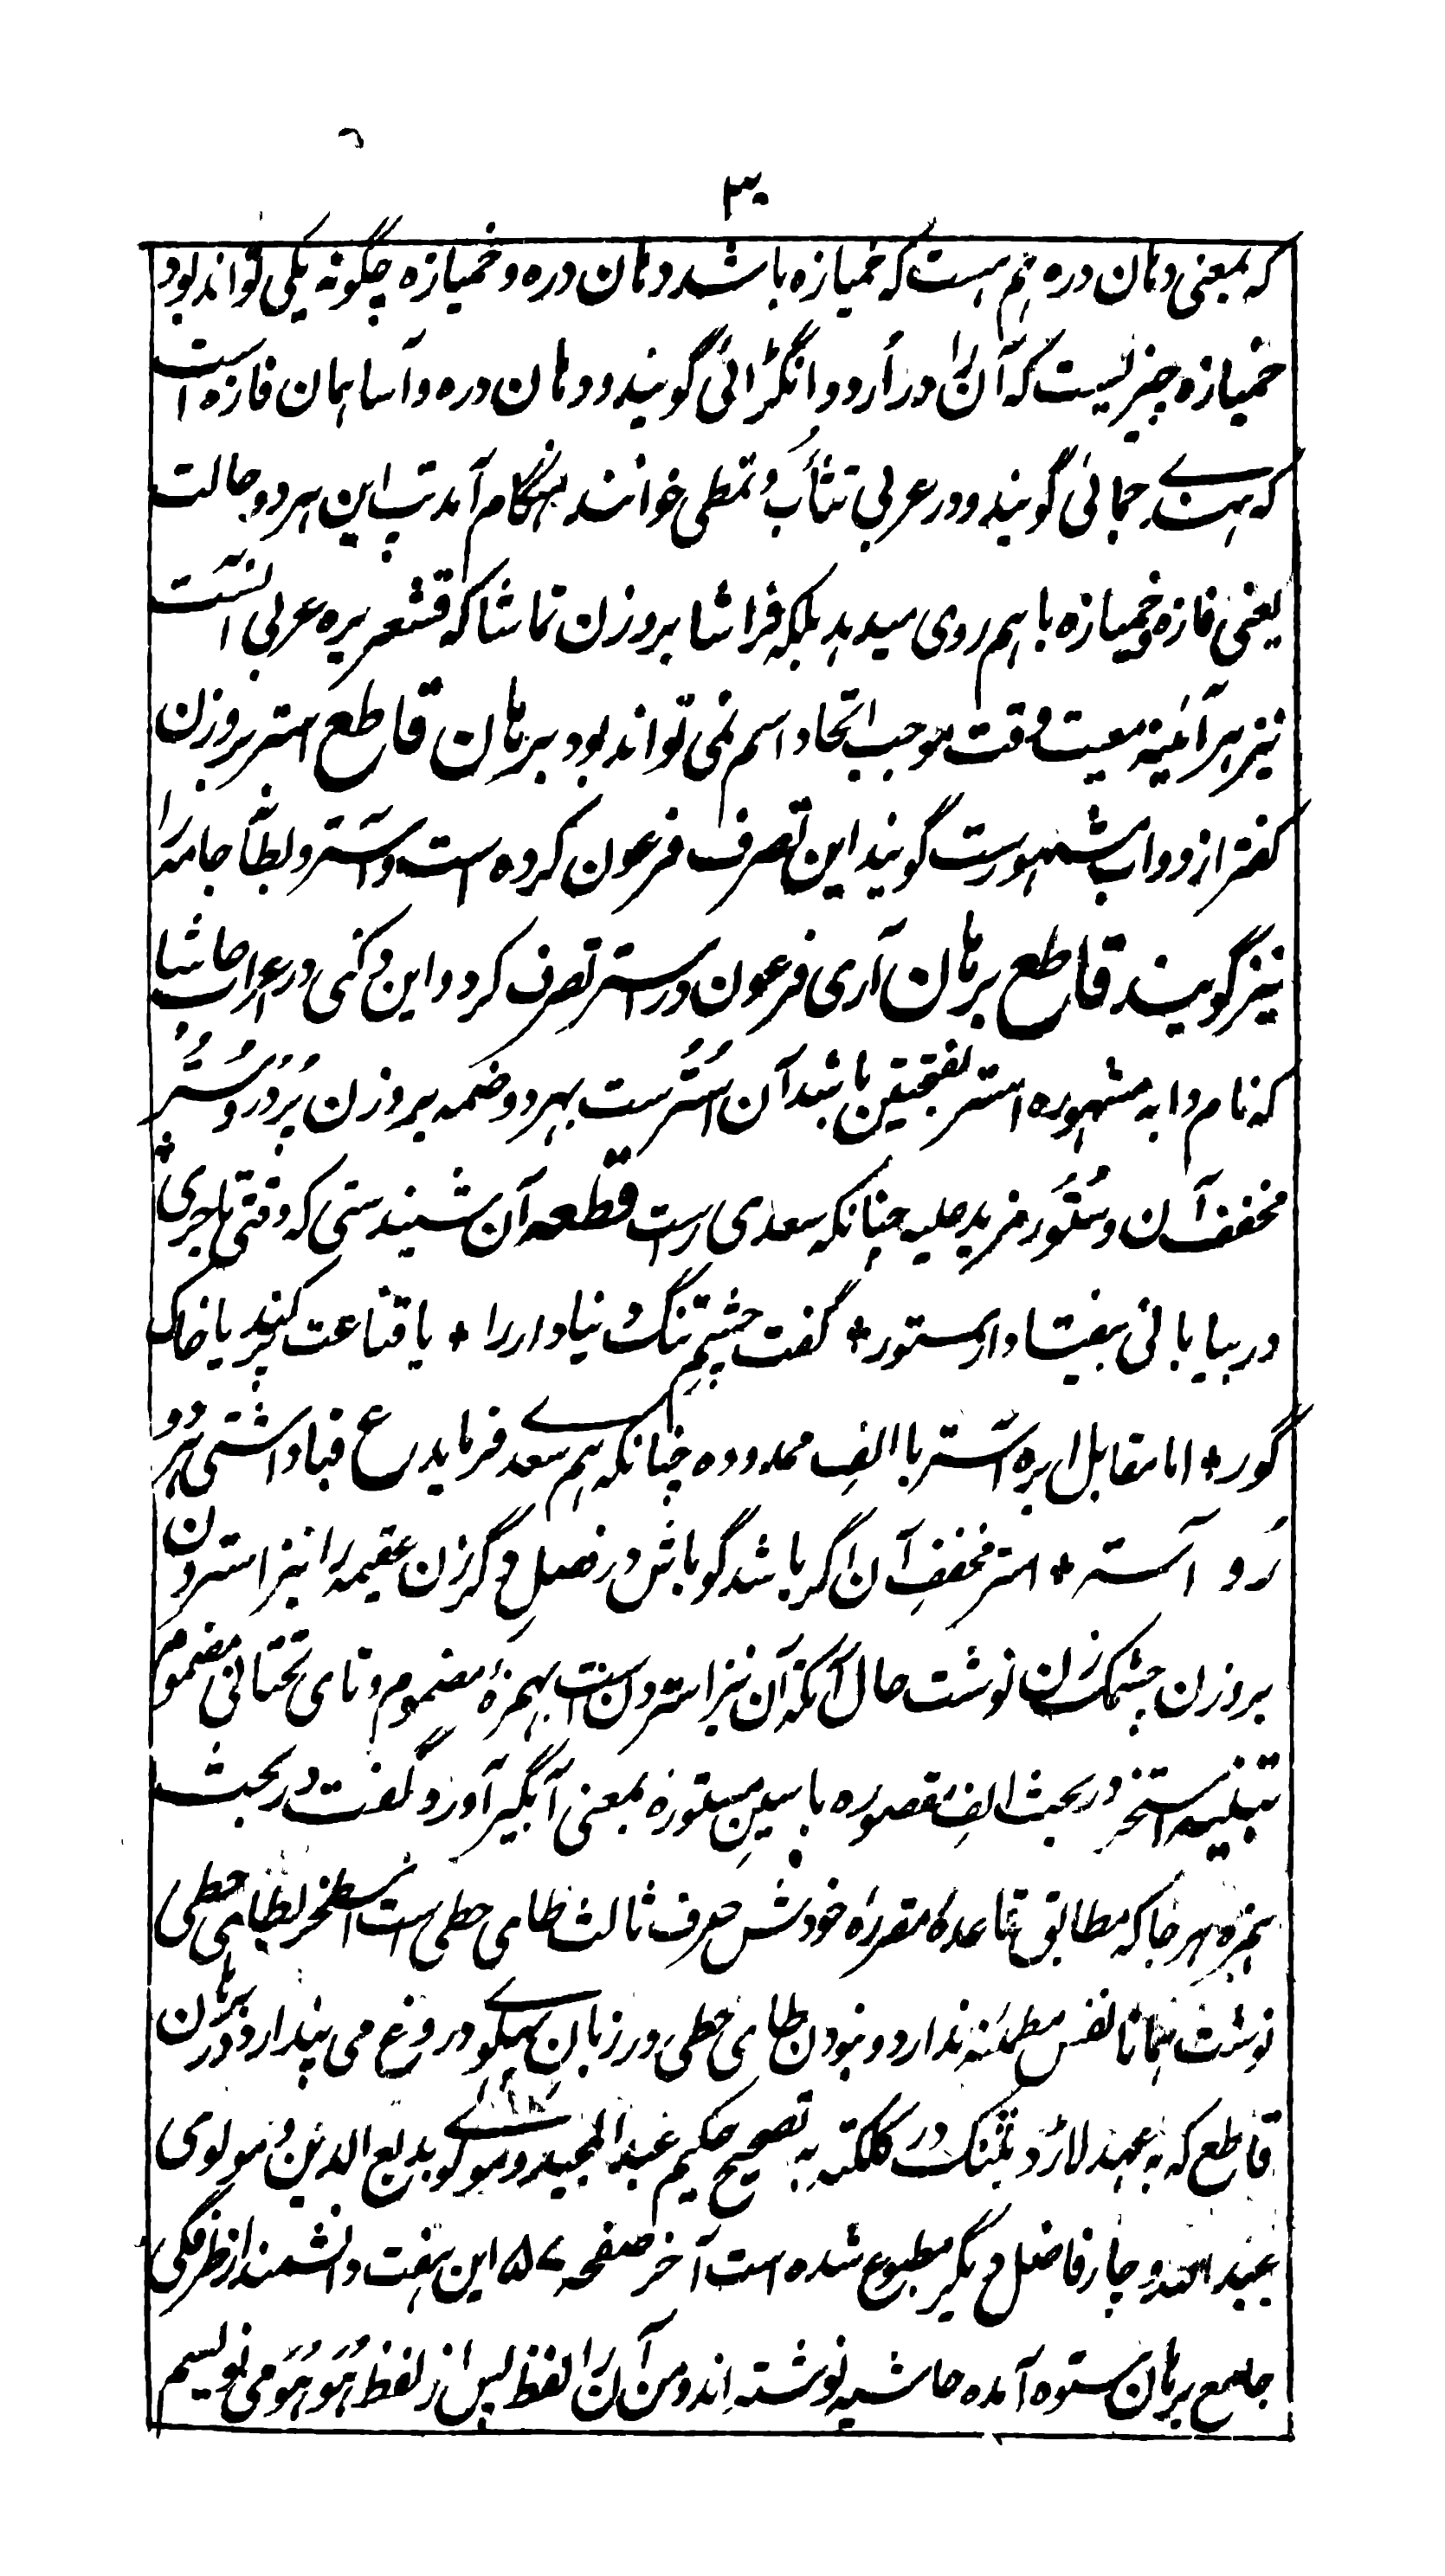 ۳۰
که بمعنی دهان دره هم هست که خمیازه باشد دهان دره و خمیازه چگونه یکی تواند بود
خمیازه چیزیست که آن را در اردو انگڑائی گویند و دهان دره و آسا همان فازه است
که بهندی جمائی گویند و در عربی تثأب و تمطی خوانند هنگام آمد تپ این هر دو حالت
یعنی فازه و خمیازه باهم روی میدهد بلکه فراشا بروزن تماشا که قشعریره عربی آنست
نیز هر آئینه معیت وقت موجب اتحاد اسم نمی تواند بود برهان قاطع استر بروزن
کفتر از دواب مشهورست گویند این تصرف فرعون کرده است و آستر و بطأنه جامه را
نیز گویند قاطع برهان آری فرعون در استر تصرف کرد و این دکنی در اعراب حاشا
که نام دابه مشهوره استر بفتحتین باشد آن اُستُرست بهر دو ضمه بروزن پُردُر و سُتُر
مخفف آن و سُتَور مزید علیه چنانکه سعدی راست قطعه آن شنیدستی که وقتی تاجری *
در بیابانی بیفتاد از ستور * گفت چشمِ تنگ دنیا دار را * یا قناعت پر کند یا خاک
گور * اما مقابل ابره آستر با الفِ ممدوده چنانکه هم سعدی فرماید ع قبا داشتی هر دو
رَو آستر * استر مخففِ آن اگر باشد گو باش در فصلِ دگر زن عقیمه را نیز استردن
بروزن چشمک زن نوشت حال آنکه آن نیز استردن ست بهمزهٔ مضموم و تای تحتانی مضموم
تنبیه استخر در بحث الفِ مقصوره با سینِ مستوره بمعنی آبگیر آورد و گفت در بحث
همزه هر جا که مطابق قاعدهٔ مقررهٔ خودش حرف ثالث طای حطی است اسطخر بطای حطی
نوشت همانا نفس مطمئنه ندارد و نبودن طای حطی در زبان پهلوی دروغ می پندارد در برهان
قاطع که به عهد لارڈ بٹنگ در کلکته به تصحیح حکیم عبدالمجید و مولوی بدیع الدین و مولوی
عبدالله و چار فاضل دیگر مطبوع شده است آخر صفحه ۵۷ این هفت دانشمند از طرفگی
جامع برهان ستوه آمده حاشیه نوشته اند و من آن را لفظ پس از لفظ هُوَ هُوَ می نویسم